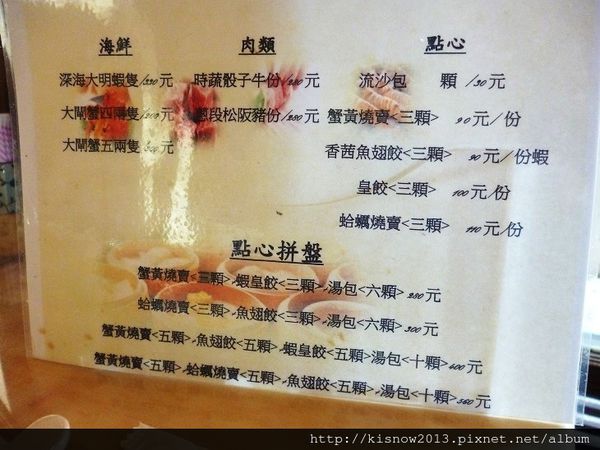 海鮮 肉類 點心
深海大明蝦隻/220元 時蔬骰子牛份/280元 流沙包 顆 /30元
大閘蟹四兩隻 蔥段松阪豬份/250元 蟹黃燒賣<三顆> 90元/份
大閘蟹五兩隻 元 香茜魚翅餃<三顆> 90元/份蝦
皇餃<三顆> 100元/份
蛤蠣燒賣<三顆> 110元/份
點心拼盤
蟹黃燒賣<三顆>,蝦皇餃<三顆>,湯包<六顆>280元
蛤蠣燒賣<三顆>,魚翅餃<三顆>,湯包<六顆>300元
蟹黃燒賣<五顆>,魚翅餃<五顆>,蝦皇餃<五顆>湯包<十顆>400元
蟹黃燒賣<五顆>,蛤蠣燒賣<五顆>,魚翅餃<五顆>,湯包<十顆>560元
http://kisnow2013.pixnet.net/album